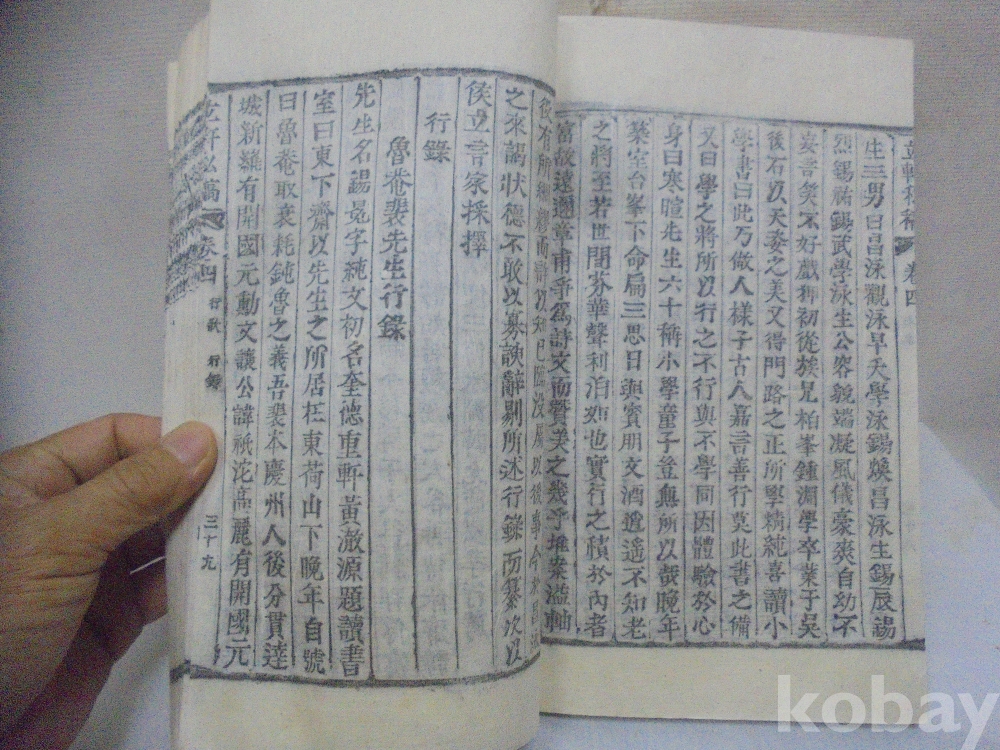 立軒私稿 卷四
生三男曰昌泳觀泳早夭學泳錫煥昌泳生錫辰錫
烈錫祐錫武學泳生公容貌端凝風儀豪爽自幼不
妄言笑不好戲狎初從族兄柏峯鍾淵學卒業于吳
後石以天姿之美又得門路之正所學精純喜讀小
學書曰此乃做人樣子古人嘉言善行莫此書之備
又曰學之將所以行之不行與不學同因體驗於心
身曰寒暄先生六十稱小學童子豈無所以哉晚年
築室台峯下命扁三思日與賓朋文酒逍遙不知老
之將至若世間芬華聲利泊如也實行之積於內者
富故遠邇章甫爭爲詩文而贊美之幾乎堆案溢軸
後有所
之來謁狀德不敢以募諛辭剔所述行錄而纂次以
俟立言家採擇
行錄
魯菴裴先生行錄
先生名錫冕字純文初名奎德重軒黃澈源題讀書
室曰東下齋以先生之所居在東荷山下晚年自號
曰魯菴取衰耗鈍魯之義吾裴本慶州人後分貫達
城新羅有開國元勳文讓公諱祗沱高麗有開國元
立軒私稿 卷四 行狀 行錄 三十九
kobay